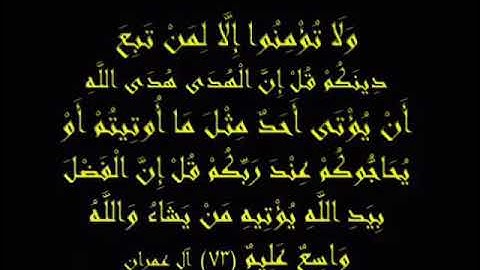 وَلَا تُؤْمِنُوا إِلَّا لِمَنْ تَبِعَ
دِينَكُمْ قُلْ إِنَّ الْهُدَى هُدَى اللَّهِ
أَنْ يُؤْتَى أَحَدٌ مِثْلَ مَا أُوتِيتُمْ أَوْ
يُحَاجُّوكُمْ عِنْدَ رَبِّكُمْ قُلْ إِنَّ الْفَضْلَ
بِيَدِ اللَّهِ يُؤْتِيهِ مَنْ يَشَاءُ وَاللَّهُ
وَاسِعٌ عَلِيمٌ (٧٣) آل عمران